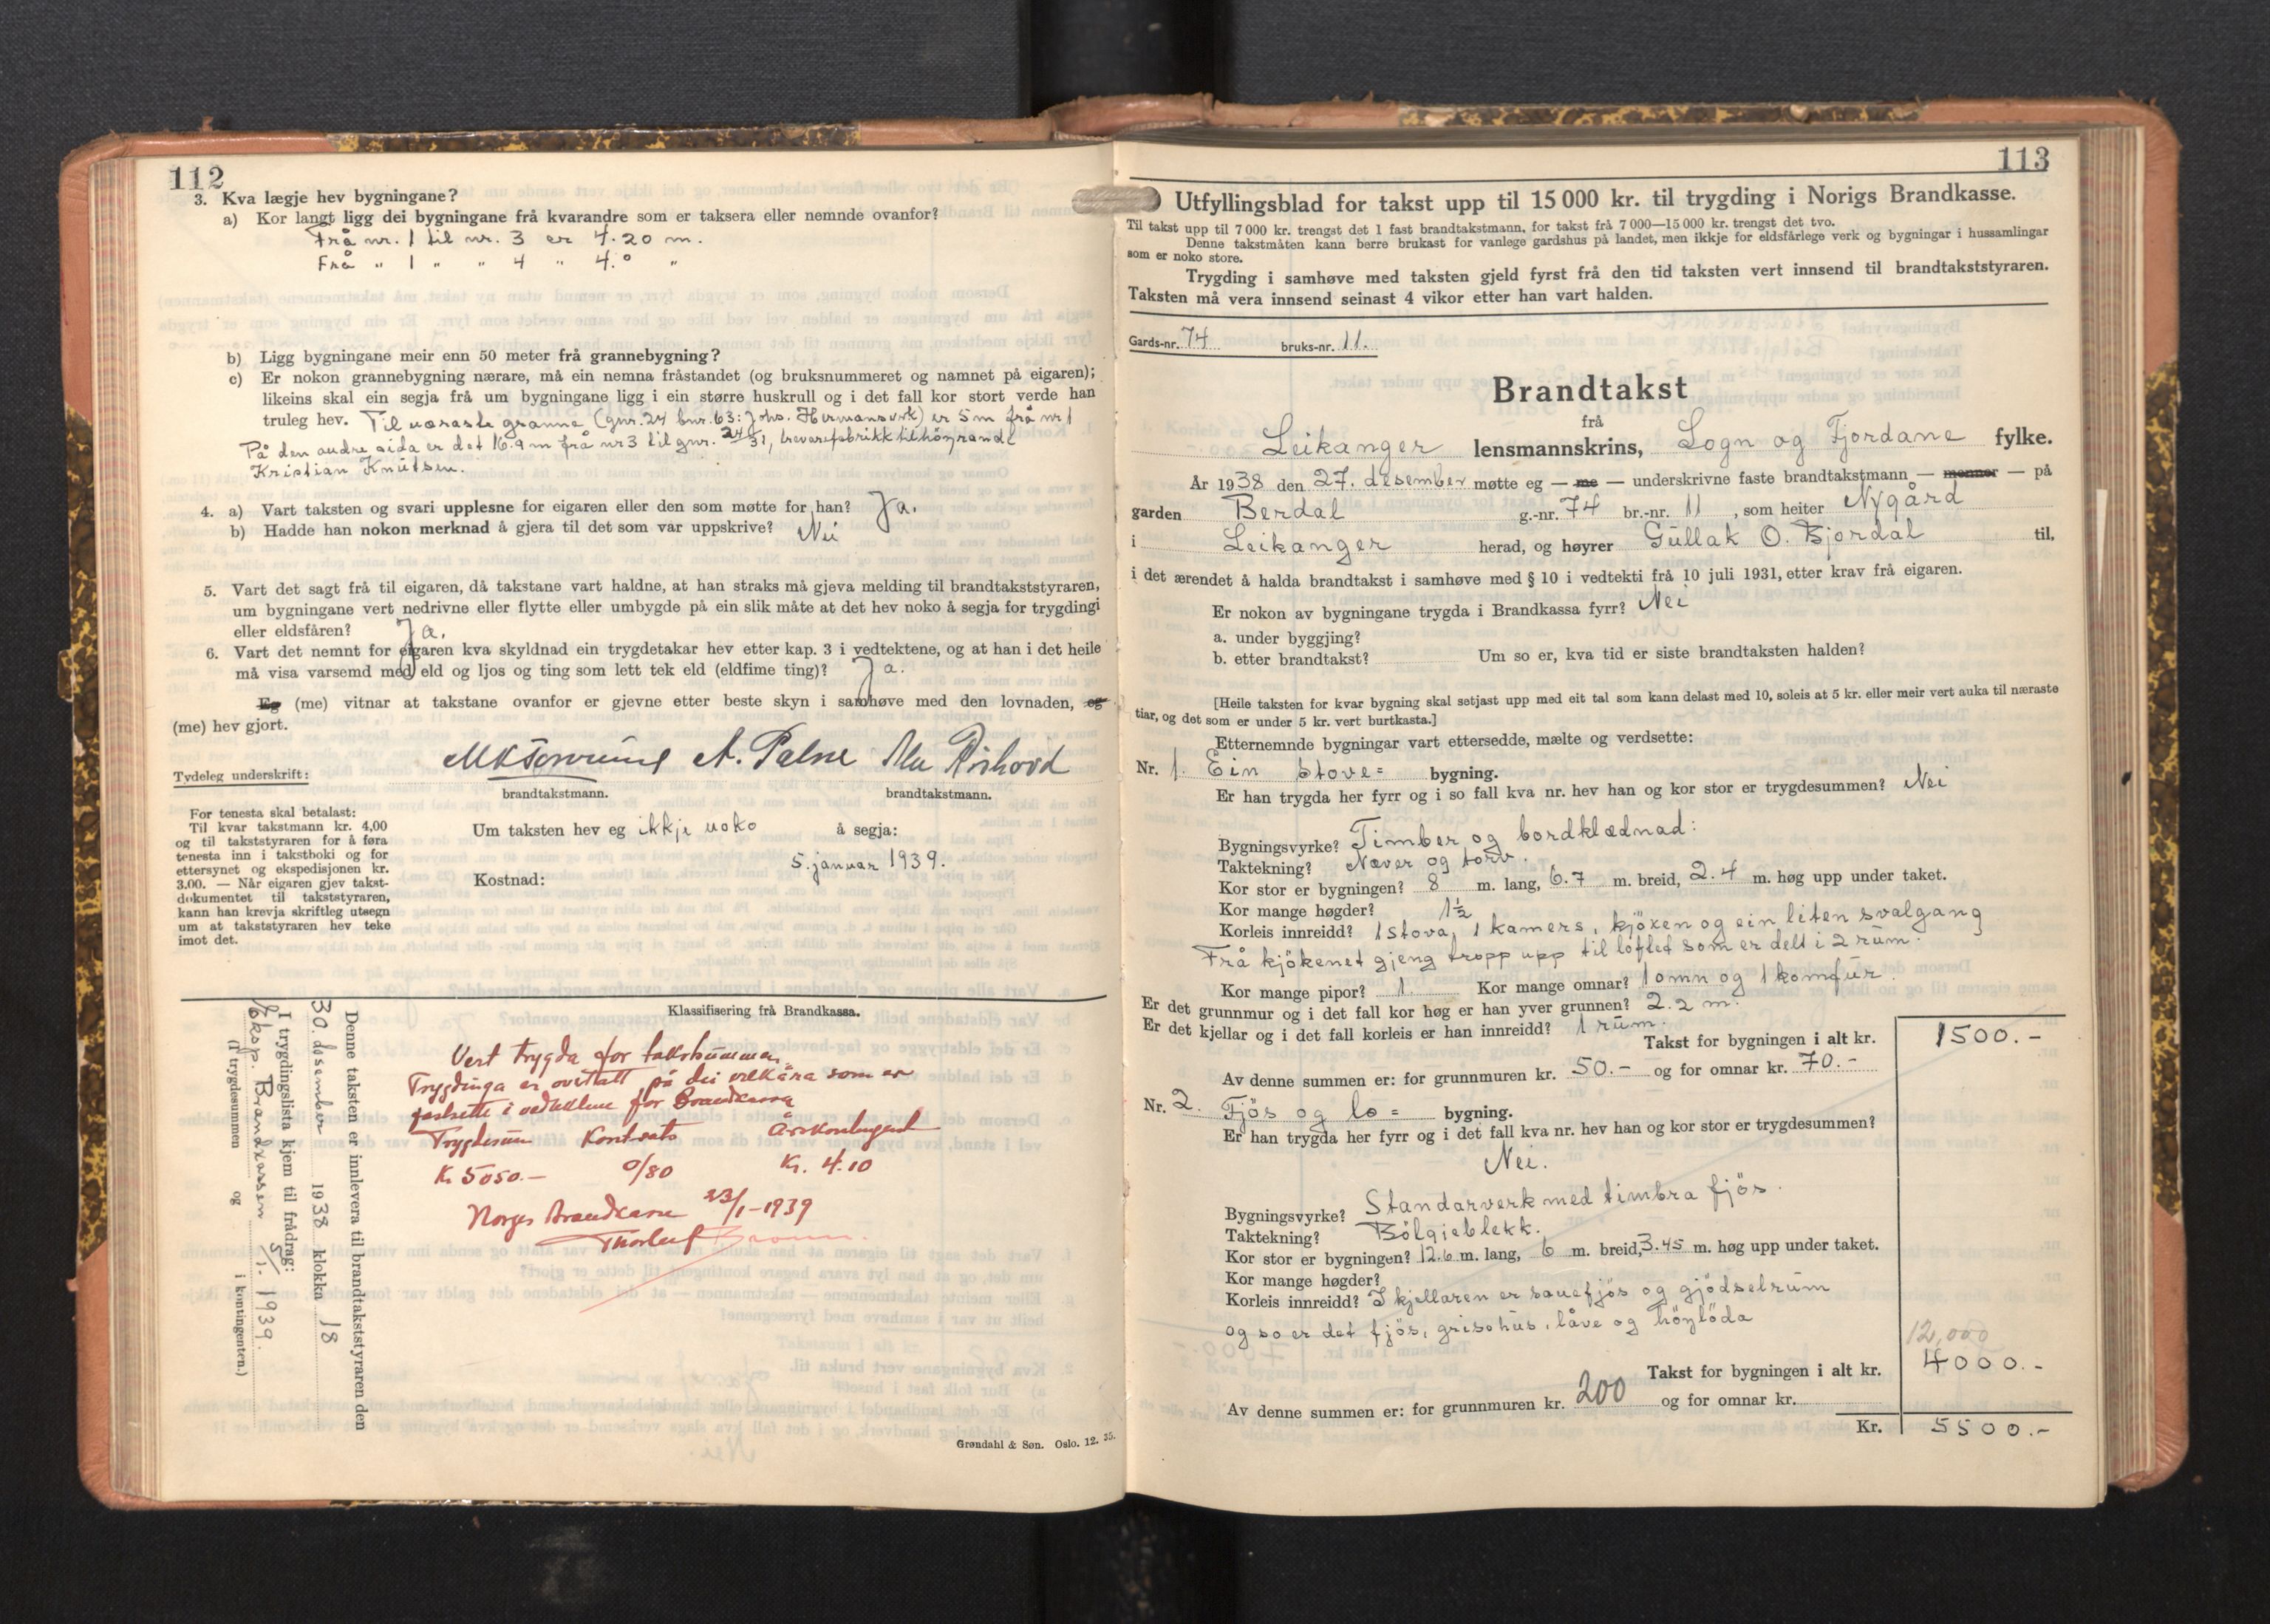 112
3. Kva lægje hev bygningane?
a) Kor langt ligg dei bygningane frå kvarandre som er taksera eller nemnde ovanfor?
Frå nr. 1 til nr. 3 er 4.20 m.
Frå " 1 " " 4 " 4.0 "
b) Ligg bygningane meir enn 50 meter frå grannebygning?
c) Er nokon grannebygning nærare, må ein nemna fråstandet (og bruksnummeret og namnet på eigaren);
likeins skal ein segja frå um bygningane ligg i ein større huskrull og i det fall kor stort verde han
truleg hev. Til næraste granne (gnr. 24 bnr. 63: Johs. Hermansverk) er 5 m frå nr 1
På den andre sida er det 16.9 m frå nr 3 til gnr. 24/31, trevarefabrikk tilhøyrande
Kristian Knutsen.
4. a) Vart taksten og svari upplesne for eigaren eller den som møtte for han? Ja.
b) Hadde han nokon merknad å gjera til det som var uppskrive? Nei
5. Vart det sagt frå til eigaren, då takstane vart haldne, at han straks må gjeva melding til brandtakststyraren,
um bygningane vert nedrivne eller flytte eller umbygde på ein slik måte at det hev noko å segja for trygdingi
eller eldsfåren? Ja.
6. Vart det nemnt for eigaren kva skyldnad ein trygdetakar hev etter kap. 3 i vedtektene, og at han i det heile
må visa varsemd med eld og ljos og ting som lett tek eld (eldfime ting)? Ja.
Eg (me) vitnar at takstane ovanfor er gjevne etter beste skyn i samhøve med den lovnaden, eg
(me) hev gjort.
Tydeleg underskrift: A.
brandtakstmann. brandtakstmann.
For tenesta skal betalast:
Til kvar takstmann kr. 4,00
og til takststyraren for å føra
tenesta inn i takstboki og for
ettersynet og ekspedisjonen kr.
3.00. — Når eigaren gjev takst-
dokumentet til takststyraren,
kann han krevja skriftleg utsegn
um at takststyraren hev teke
imot det.
Um taksten hev eg ikkje noko å segja:
5. januar 1939.
Kostnad:
Denne taksten er innlevera til brandtakststyraren den
30. desember 1938 klokka 18
I trygdingslista kjem til frådrag:
Eksp. Brandkassen 5/1. 1939.
(I trygdesummen og i kontingenten.)
Klassifisering frå Brandkassa.
Vert trygda for takstsummen
Trygdinga er ovetatt på dei vilkåra som er
fastsette i vedtektene for Brandkassa
Trygdesum Kontsats Årskontingent
Kr. 5050.- 0/80 Kr. 4.10
Norges Brandkasse 23/1-1939
Grøndahl & Søn. Oslo. 12. 35.
113
Utfyllingsblad for takst upp til 15 000 kr. til trygding i Norigs Brandkasse.
Til takst upp til 7 000 kr. trengst det 1 fast brandtakstmann, for takst frå 7 000—15 000 kr. trengst det tvo.
Denne takstmåten kann berre brukast for vanlege gardshus på landet, men ikkje for eldsfårlege verk og bygningar i hussamlingar
som er noko store.
Trygding i samhøve med taksten gjeld fyrst frå den tid taksten vert innsend til brandtakststyraren.
Taksten må vera innsend seinast 4 vikor etter han vart halden.
Gards-nr. 74 bruks-nr. 11.
Brandtakst
frå
Leikanger lensmannskrins, Sogn og Fjordane fylke.
År 1938 den 27. desember møtte eg — me — underskrivne faste brandtakstmann — menner — på
garden Berdal g.-nr. 74 br.-nr. 11, som heiter Nygård
i Leikanger herad, og høyrer Gullak O. Bjordal til,
i det ærendet å halda brandtakst i samhøve med § 10 i vedtekti frå 10 juli 1931, etter krav frå eigaren.
Er nokon av bygningane trygda i Brandkassa fyrr? Nei
a. under byggjing?
b. etter brandtakst? Um so er, kva tid er siste brandtaksten halden?
[Heile taksten for kvar bygning skal setjast upp med eit tal som kann delast med 10, soleis at 5 kr. eller meir vert auka til næraste
tiar, og det som er under 5 kr. vert burtkasta.]
Etternemnde bygningar vart ettersedde, mælte og verdsette:
Nr. 1. Ein stove= bygning.
Er han trygda her fyrr og i so fall kva nr. hev han og kor stor er trygdesummen? Nei
Bygningsvyrke? Timber og bordklædnad:
Taktekning? Næver og torv.
Kor stor er bygningen? 8 m. lang, 6.7 m. breid, 2.4 m. høg upp under taket.
Kor mange høgder? 1½
Korleis innreidd? 1 stova, 1 kamers, kjöken og ein liten svalgang
Frå kjökenet gjeng tropp upp til loftet som er delt i 2 rum.
Kor mange pipor? 1. Kor mange omnar? 1 omn og 1 komfur.
Er det grunnmur og i det fall kor høg er han yver grunnen? 2.2 m.
Er det kjellar og i det fall korleis er han innreidd? 1 rum.
Takst for bygningen i alt kr. 1500.-
Av denne summen er: for grunnmuren kr. 50.- og for omnar kr. 70.-
Nr. 2. Fjös og lo= bygning.
Er han trygda her fyrr og i det fall kva nr. hev han og kor stor er trygdesummen?
Nei.
Bygningsvyrke? Standarverk med timbra fjös.
Taktekning? Bölgieblekk.
Kor stor er bygningen? 12.6 m. lang, 6 m. breid, 3.45 m. høg upp under taket.
Kor mange høgder?
Korleis innreidd? I kjellaren er sauefjös og gjödselrum
og so er det fjös, grisehus, låve og höylöda
12,000
Takst for bygningen i alt kr. 4000.-
Av denne summen er: for grunnmuren kr. 200 og for omnar kr.
Kr. 5500.-